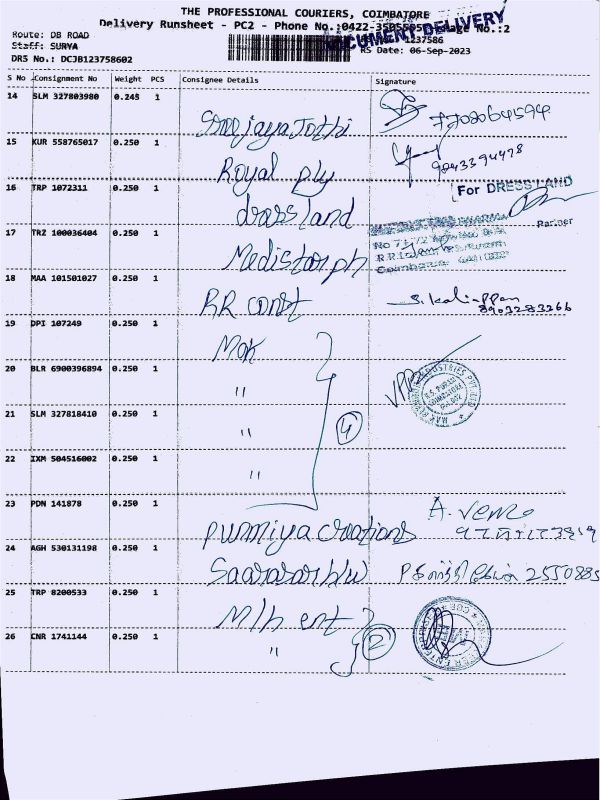 THE PROFESSIONAL COURIERS, COIMBATORE
Delivery Runsheet - PC2 - Phone No.:0422- No.:2
DOCUMENT DELIVERY
Route: DB ROAD
Staff: SURYA
1237586
RS Date: 06-Sep-2023
DRS No.: DCJB123758602
S No Consignment No Weight PCS Consignee Details Signature
14 SLM 327803980 0.245 1
15 KUR 558765017 0.250 1 Royal ply 9843394478
16 TRP 1072311 0.250 1 dress land For DRESS LAND
Partner
17 TRZ 100036404 0.250 1
18 MAA 101501027 0.250 1 RR const S. Kaliappan
8903283266
19 DPI 107249 0.250 1 Mak
20 BLR 6900396894 0.250 1 "
21 SLM 327818410 0.250 1 " 4
22 IXM 504516002 0.250 1 "
23 PDN 141878 0.250 1 creations
24 AGH 530131198 0.250 1 2550885
25 TRP 8200533 0.250 1 M/h ent 2
26 CNR 1741144 0.250 1 "